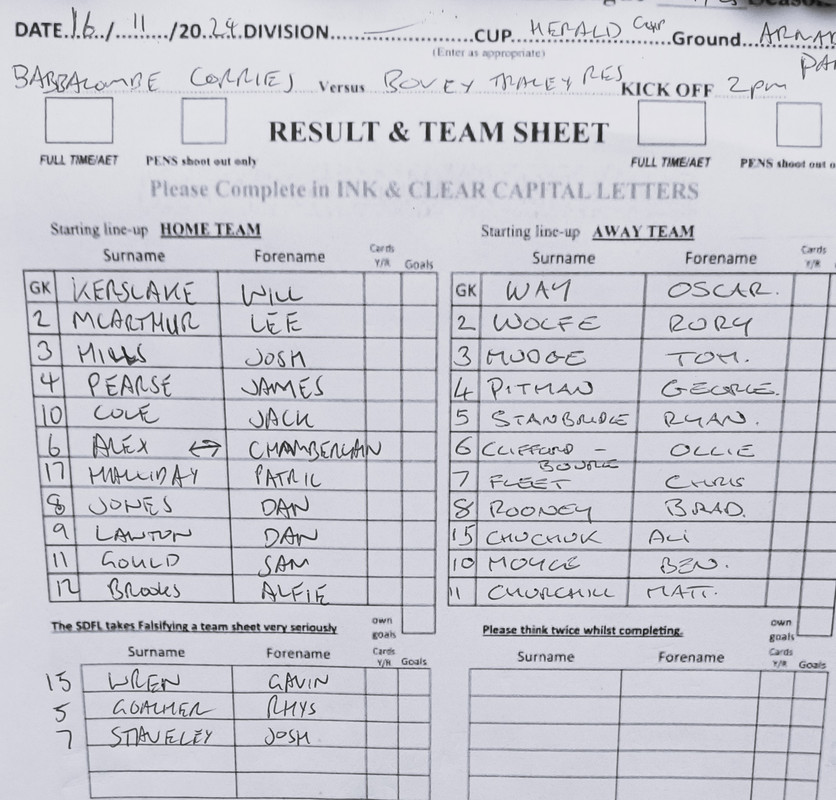 DATE.16./.11./20.24.DIVISION..........CUP.HERALD CUP.Ground...
(Enter as appropriate)
BABBACOMBE CORRIES Versus BOVEY TRACEY RES KICK OFF 2pm
RESULT & TEAM SHEET
FULL TIME/AET PENS shoot out only FULL TIME/AET PENS shoot out
Please Complete in INK & CLEAR CAPITAL LETTERS
Starting line-up HOME TEAM Starting line-up AWAY TEAM
Surname Forename Cards Y/R Goals Surname Forename Cards Y/R
GK KERSLAKE WILL GK WAY OSCAR.
2 MCARTHUR LEE 2 WOLFE RORY
3 MILLS JOSH 3 MUDGE TOM.
4 PEARSE JAMES 4 PITMAN GEORGE.
10 COLE JACK 5 STANBRIDGE RYAN.
6 ALEX ↔ CHAMBERLAIN 6 CLIFFORD - BOURKE OLLIE
17 HALLIDAY PATRIC 7 FLEET CHRIS
8 JONES DAN 8 ROONEY BRAD.
9 LAWTON DAN 15 CHUCHUK ALi
11 GOULD SAM 10 MOYCE BEN.
12 BROOKS ALFIE 11 CHURCHILL MATT.
own goals own goals
The SDFL takes Falsifying a team sheet very seriously Please think twice whilst completing.
Surname Forename Cards Y/R Goals Surname Forename Cards Y/R Goals
15 WREN GAVIN
5 GOALHER RHYS
7 STAVELEY JOSH